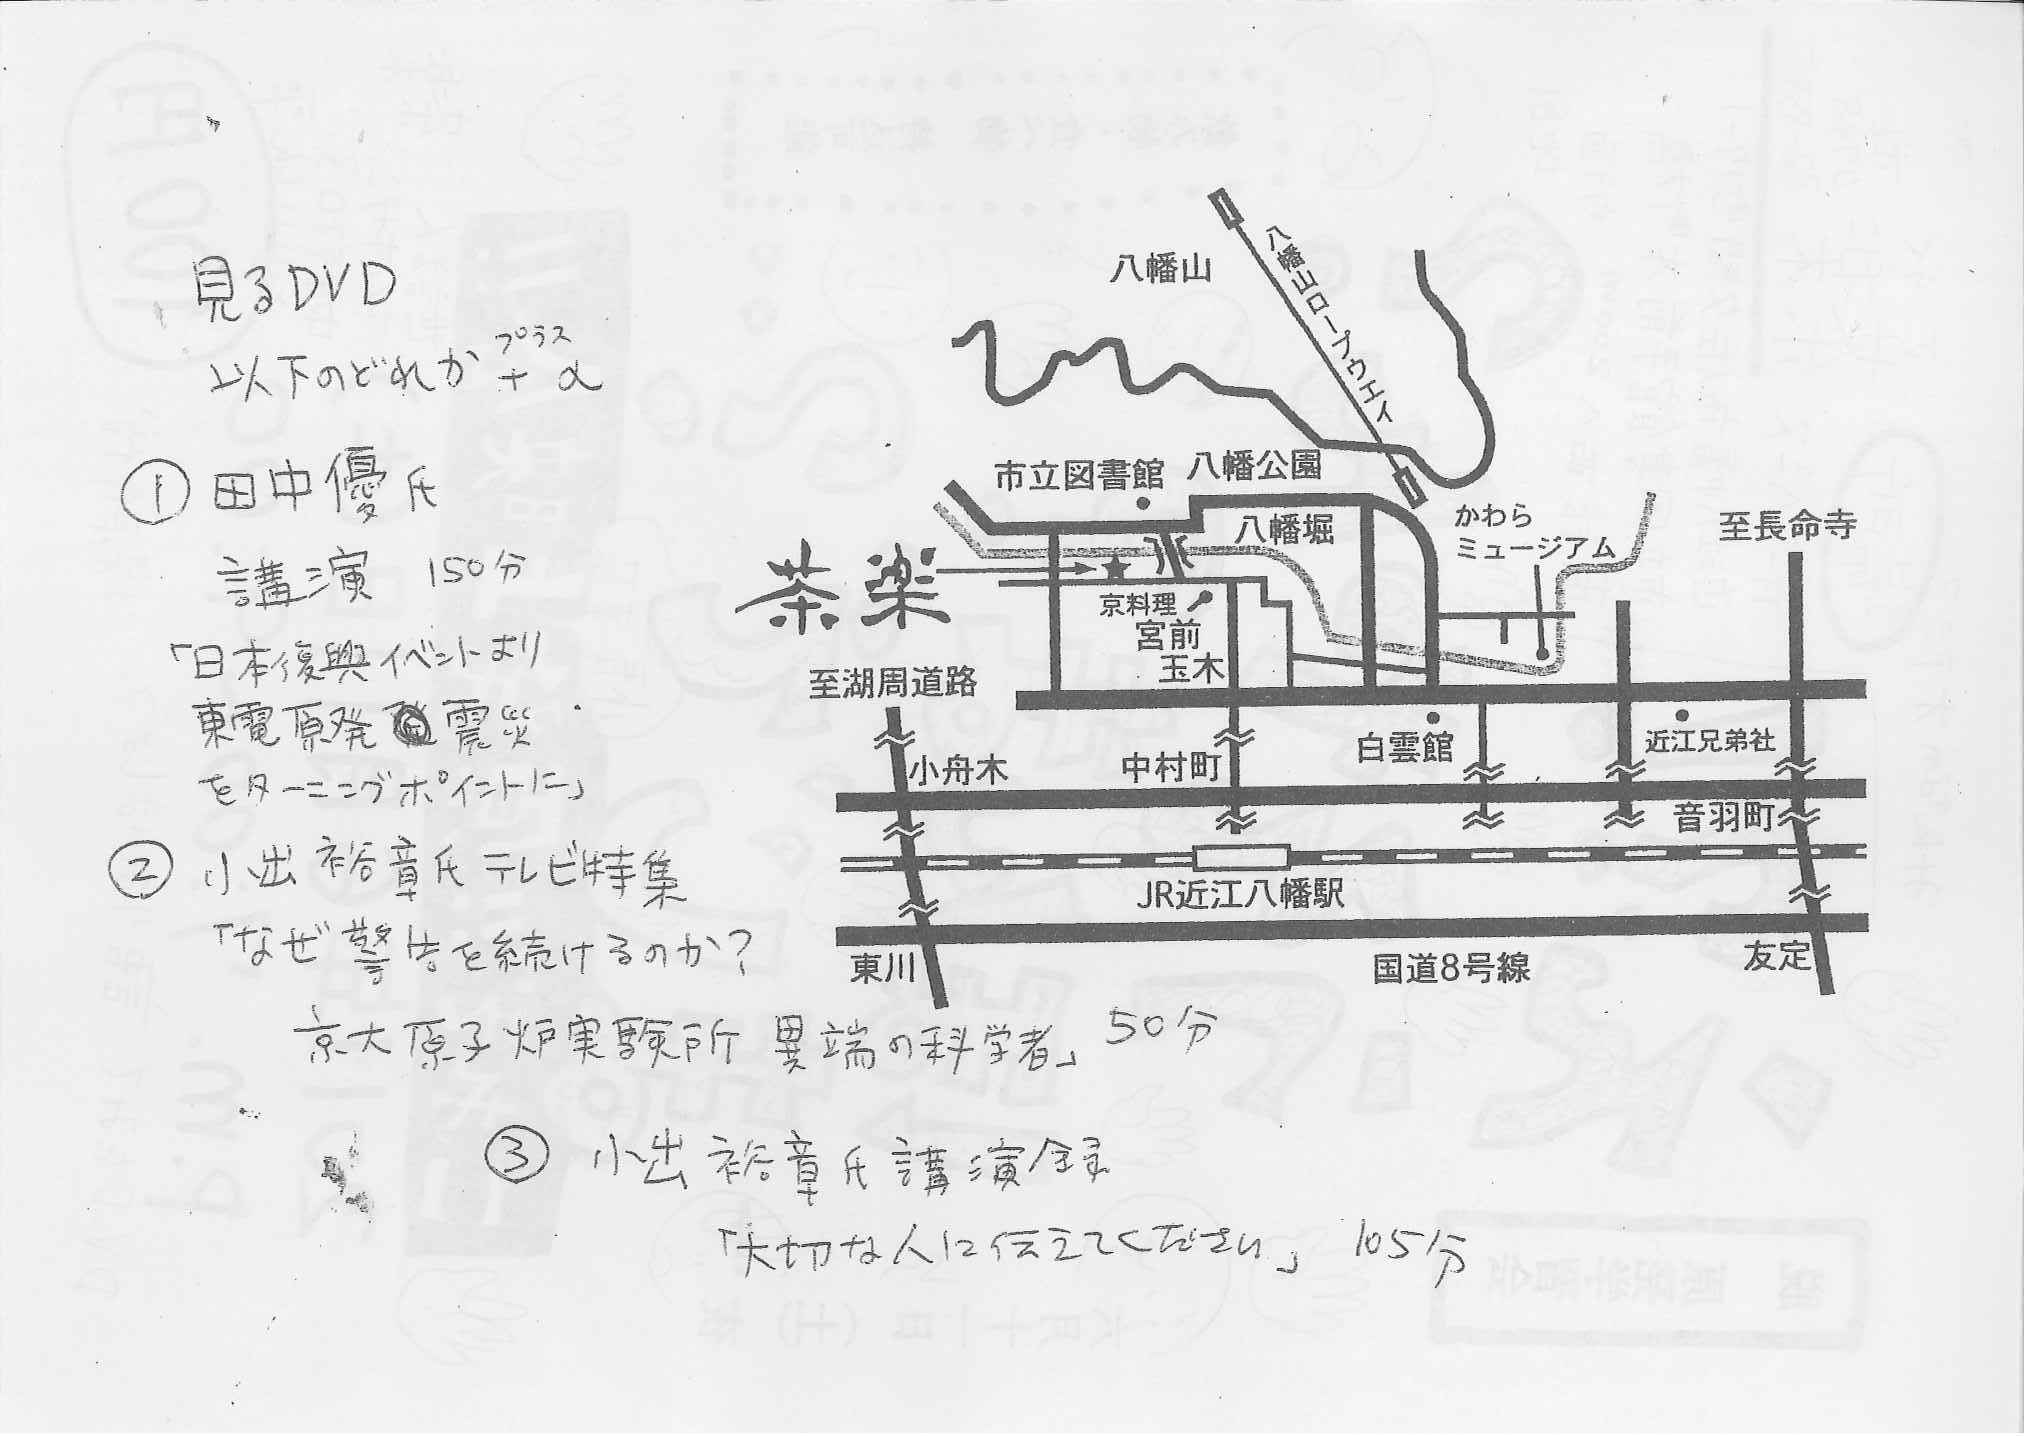 見るDVD
以下のどれか + α
プラス
① 田中優氏
講演 150分
「日本復興イベントより
東電原発震災
をターニングポイントに」
② 小出裕章氏 テレビ特集
「なぜ警告を続けるのか?
京大原子炉実験所 異端の科学者」 50分
③ 小出裕章氏講演録
「大切な人に伝えてください」 105分
八幡山
八幡山ロープウエイ
市立図書館
八幡公園
八幡堀
かわら
ミュージアム
至長命寺
茶楽
京料理
宮前
玉木
至湖周道路
小舟木
中村町
白雲館
近江兄弟社
音羽町
JR近江八幡駅
東川
国道8号線
友定